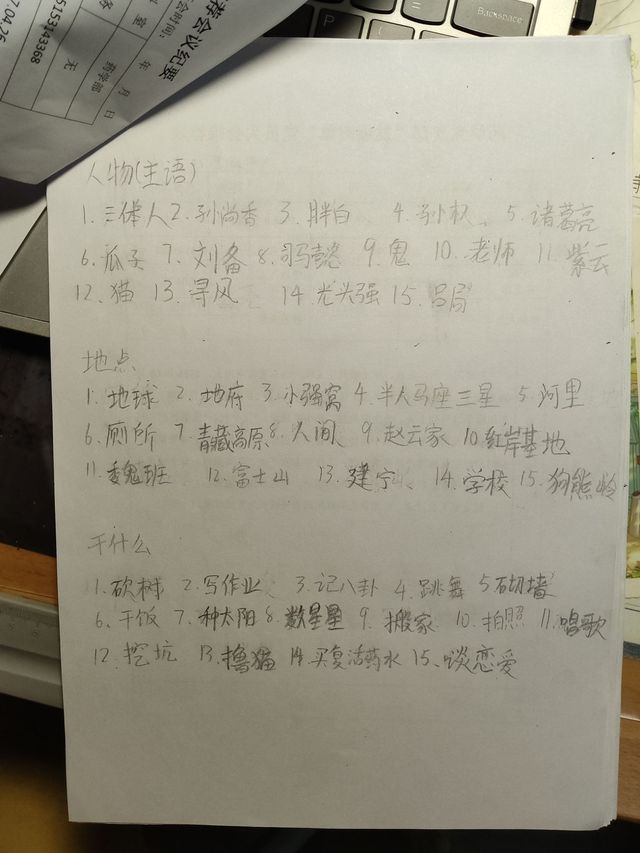 Backspace
荐会议纪要
会时间:
年 月 日
药学部
无
5153143368
7.04.26
人物(主语)
1. 三体人 2. 孙尚香 3. 胖白 4. 孙权 5. 诸葛亮
6. 瓜子 7. 刘备 8. 司马懿 9. 鬼 10. 老师 11. 紫云
12. 猫 13. 寻风 14. 光头强 15. 吕局
地点
1. 地球 2. 地府 3. 小强窝 4. 半人马座三星 5. 河里
6. 厕所 7. 青藏高原 8. 人间 9. 赵云家 10. 红岸基地
11. 魏班 12. 富士山 13. 建宁 14. 学校 15. 狗熊岭
干什么
1. 砍树 2. 写作业 3. 记八卦 4. 跳舞 5. 砌墙
6. 干饭 7. 种太阳 8. 数星星 9. 搬家 10. 拍照 11. 唱歌
12. 挖坑 13. 撸猫 14. 买复活药水 15. 谈恋爱